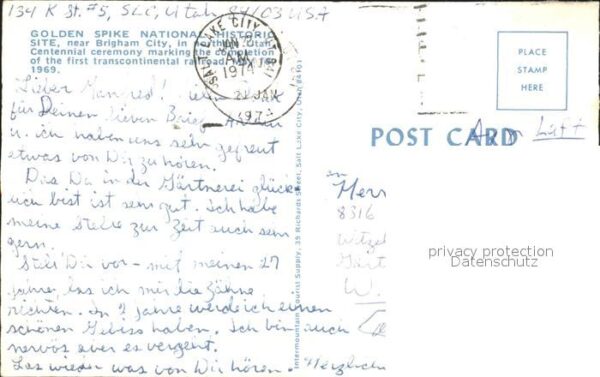 134 K St. #5, SLC, Utah 84103 USA
GOLDEN SPIKE NATIONAL HISTORIC
SITE, near Brigham City, in northern Utah.
Centennial ceremony marking the completion
of the first transcontinental railroad,
1969.
SALT LAKE CITY, UT
JAN
1974
22 JAN
197
PLACE
STAMP
HERE
POST CARD
Luft
Lieber Manfred! Vielen Dank
für Deinen lieben Brief. Arthur
u. ich haben uns sehr gefreut
etwas von Dir zu hören.
Das Du in der Gärtnerei glück-
lich bist ist sehr gut. Ich habe
meine Stelle zur Zeit auch sehr
gern.
Stell Dir vor - mit meinen 27
Jahre, las ich mir die Zähne
richten. In 2 Jahre werde ich einen
schönen Gebiss haben. Ich bin auch
nervös aber es vergeht.
Las wieder was von Dir hören. Herzlich
Intermountain Tourist Supply, 39 Richards Street, Salt Lake City, Utah 84101
an
Herr
8316
privacy protection
Datenschutz